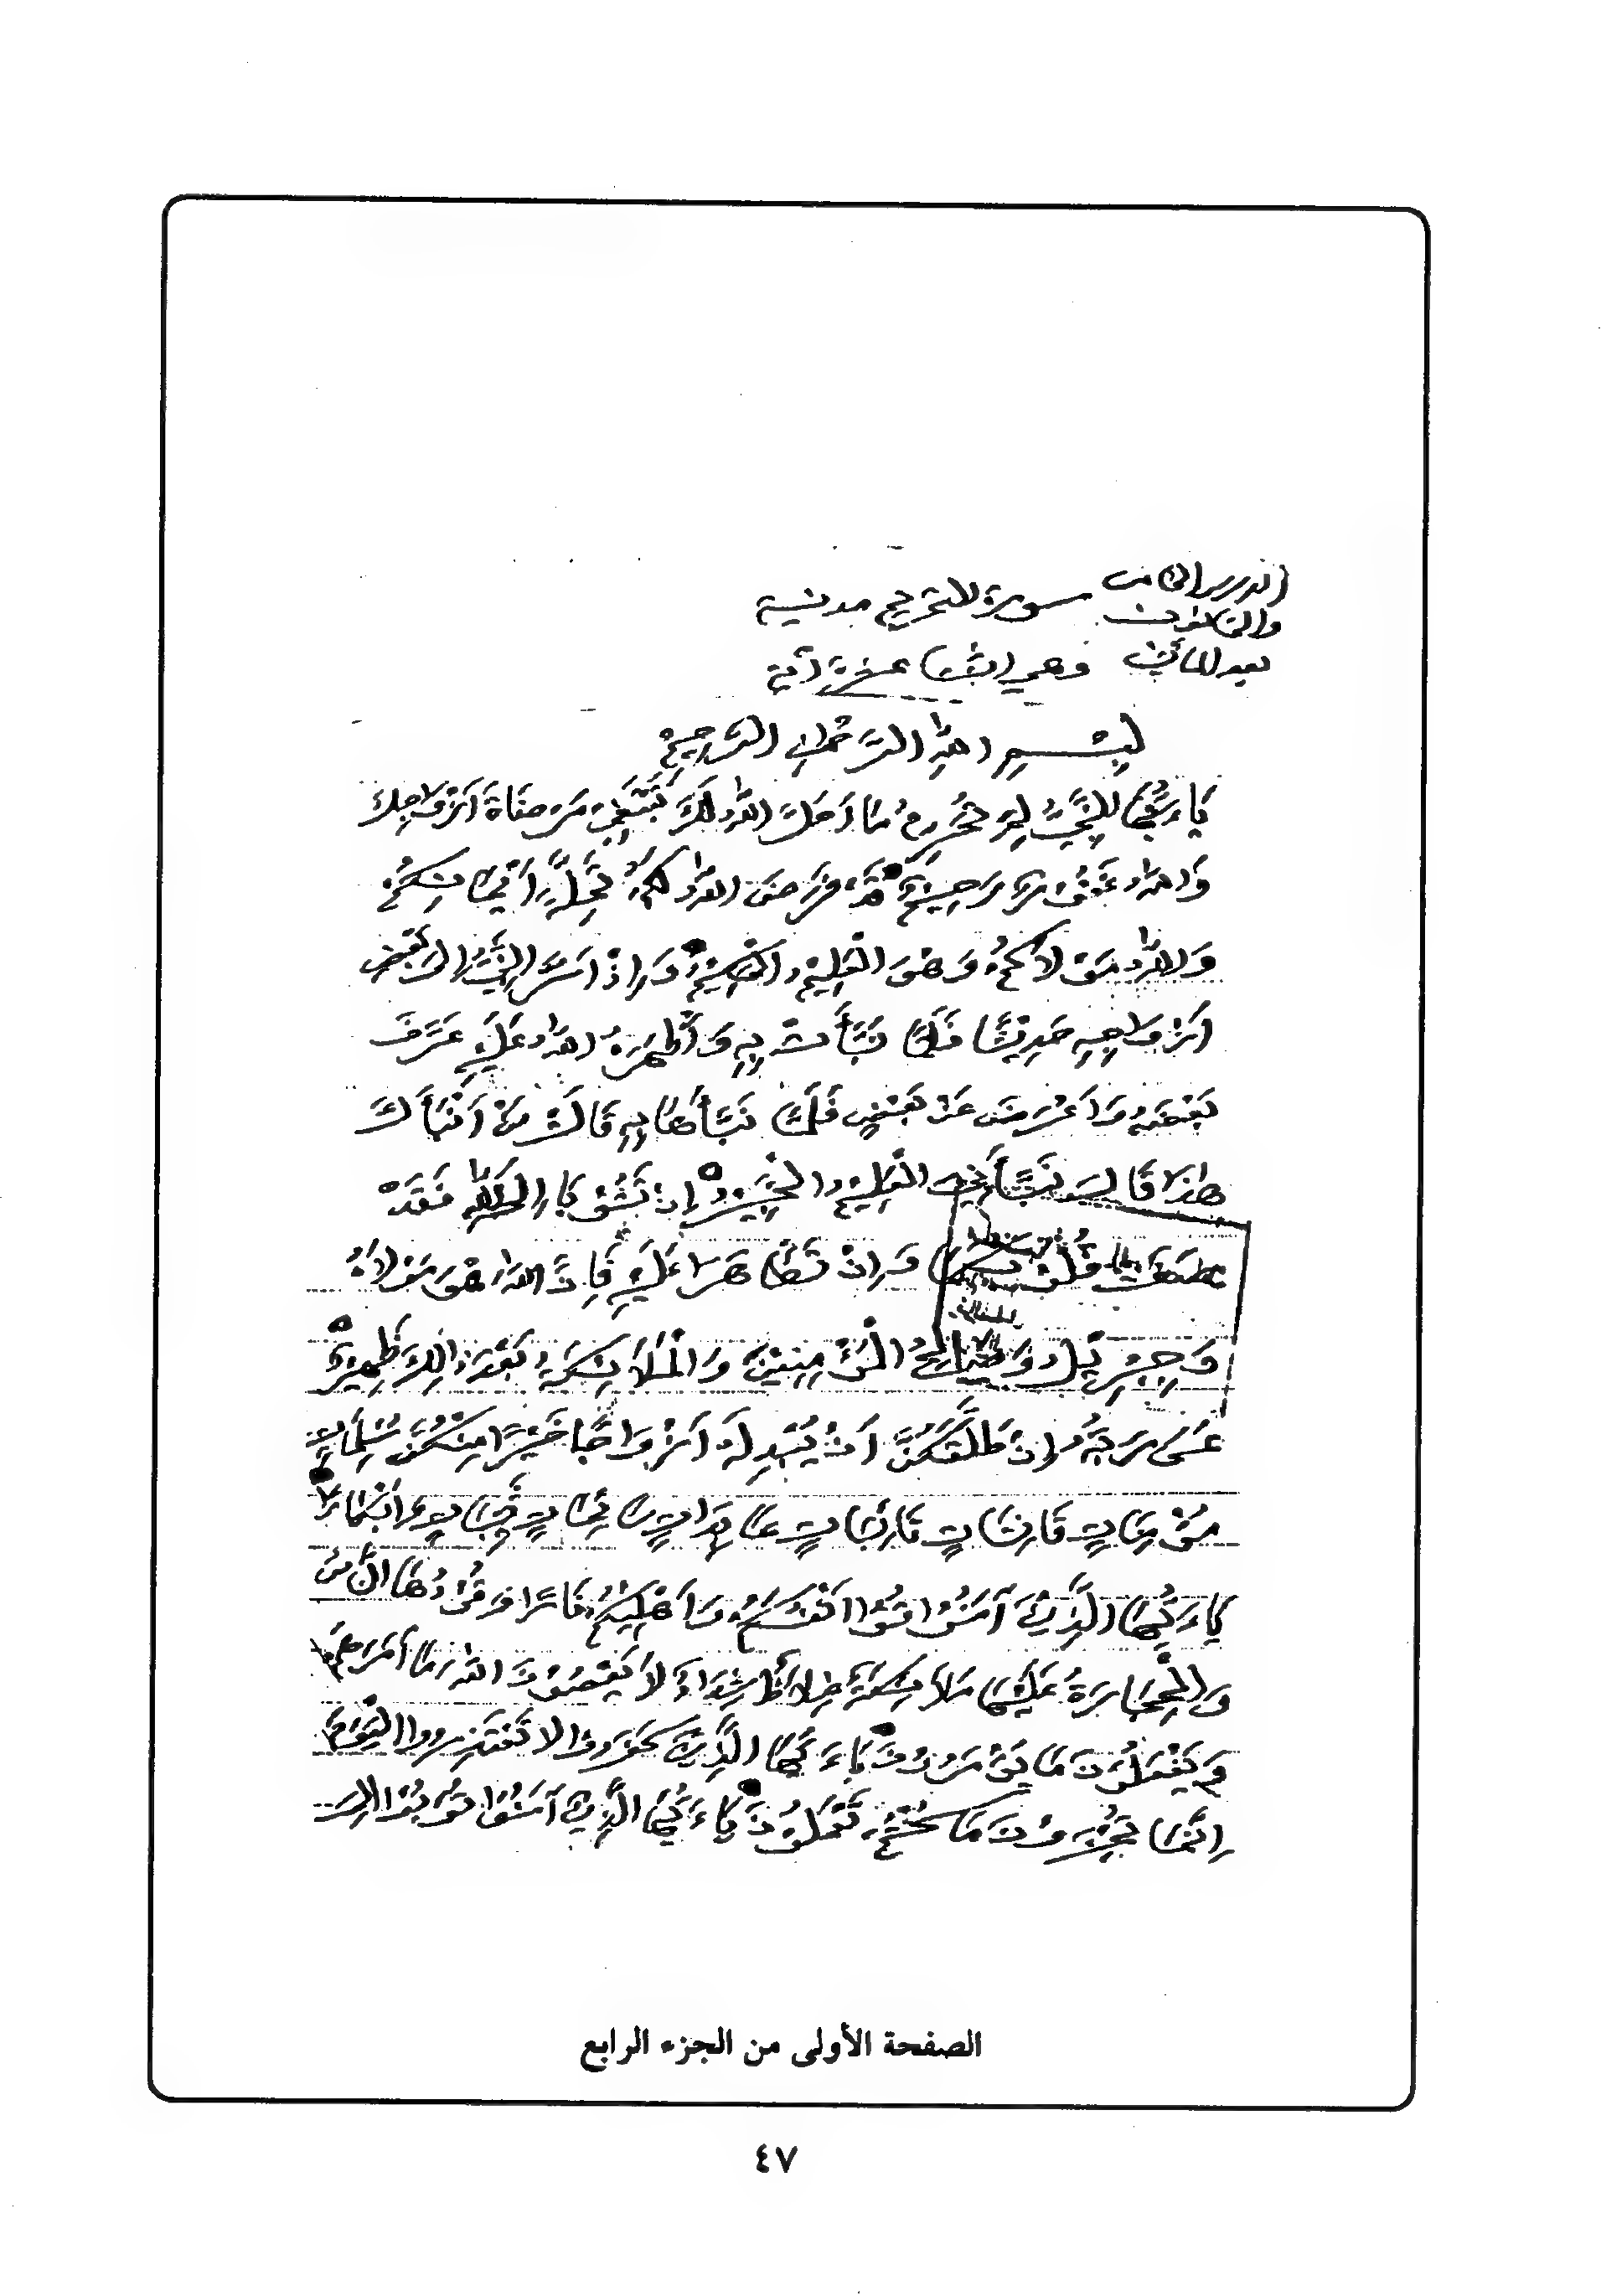 الدرس الثامن
والثمانون
بعد المائتين
سورة التحريم مدنية
وهي اثنتا عشرة آية
بِسْمِ اللهِ الرَّحْمٰنِ الرَّحِيمْ
يَاءَيُّهَا النَّبِيُّ لِمَ تُحَرِّمُ مَا أَحَلَّ اللهُ لَكَ تَبْتَغِي مَرْضَاةَ أَزْوَاجِكَ
وَاللهُ غَفُورٌ رَحِيمٌ قَدْ فَرَضَ اللهُ لَكُمْ تَحِلَّةَ أَيْمَانِكُمْ
وَاللهُ مَوْلاَكُمْ وَهُوَ الْعَلِيمُ الْحَكِيمُ وَإِذْ أَسَرَّ النَّبِيُّ إِلَى بَعْضِ
أَزْوَاجِهِ حَدِيثًا فَلَمَّا نَبَّأَتْ بِهِ وَأَظْهَرَهُ اللهُ عَلَيْهِ عَرَّفَ
بَعْضَهُ وَأَعْرَضَ عَنْ بَعْضٍ فَلَمَّا نَبَّأَهَا بِهِ قَالَتْ مَنْ أَنْبَأَكَ
هٰذَا قَالَ نَبَّأَنِيَ الْعَلِيمُ الْخَبِيرُ إِنْ تَتُوبَا إِلَى اللهِ فَقَدْ
صَغَتْ قُلُوبُكُمَا وَإِنْ تَظَاهَرَا عَلَيْهِ فَإِنَّ اللهَ هُوَ مَوْلاَهُ
وَجِبْرِيلُ وَصَالِحُ الْمُؤْمِنِينَ وَالْمَلاَئِكَةُ بَعْدَ ذٰلِكَ ظَهِيرٌ
عَسَى رَبُّهُ إِنْ طَلَّقَكُنَّ أَنْ يُبْدِلَهُ أَزْوَاجًا خَيْرًا مِنْكُنَّ مُسْلِمَاتٍ
مُؤْمِنَاتٍ قَانِتَاتٍ تَائِبَاتٍ عَابِدَاتٍ سَائِحَاتٍ ثَيِّبَاتٍ وَأَبْكَارًا
يَاءَيُّهَا الَّذِينَ آمَنُوا قُوا أَنْفُسَكُمْ وَأَهْلِيكُمْ نَارًا وَقُودُهَا النَّاسُ
وَالْحِجَارَةُ عَلَيْهَا مَلاَئِكَةٌ غِلاَظٌ شِدَادٌ لاَ يَعْصُونَ اللهَ مَا أَمَرَهُمْ
وَيَفْعَلُونَ مَا يُؤْمَرُونَ يَاءَيُّهَا الَّذِينَ كَفَرُوا لا تَعْتَذِرُوا الْيَوْمَ
إِنَّمَا تُجْزَوْنَ مَا كُنْتُمْ تَعْمَلُونَ يَاءَيُّهَا الَّذِينَ آمَنُوا تُوبُوا إِلَى
الصفحة الأولى من الجزء الرابع
٤٧